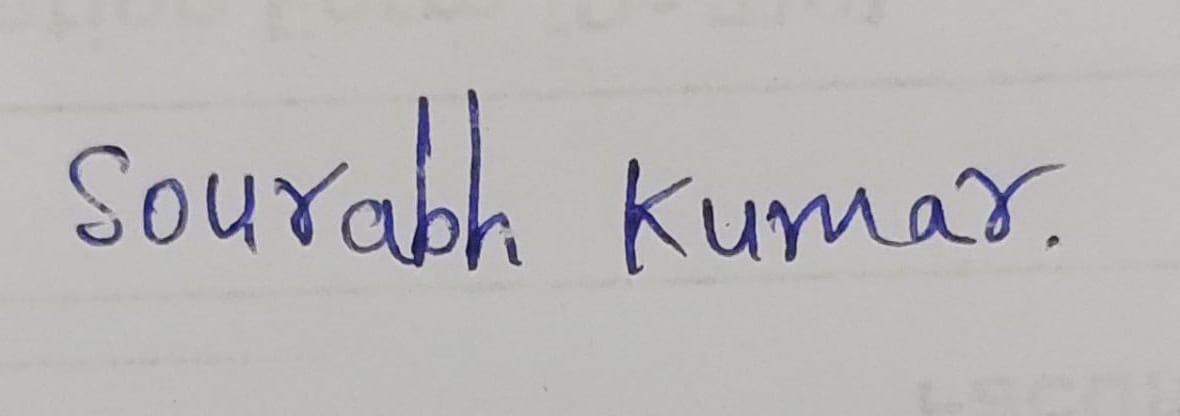 Sourabh Kumar.